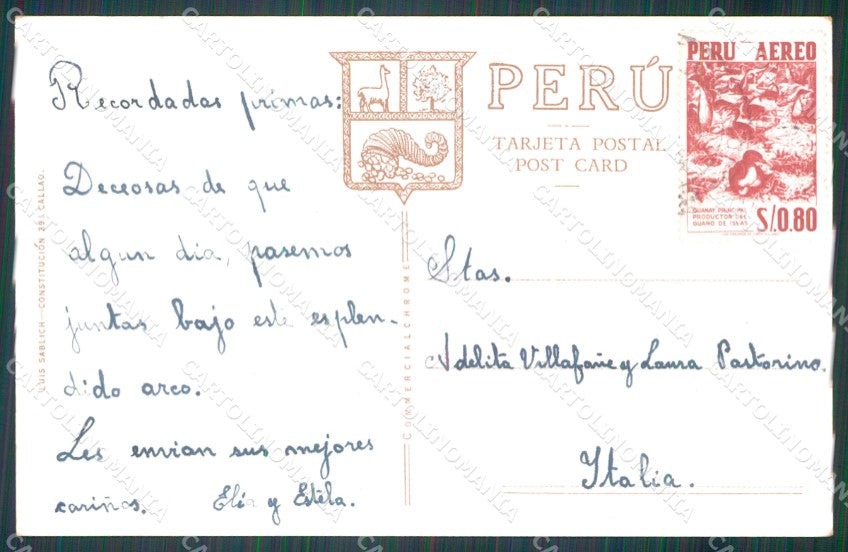 Recordadas primas:
Deceosas de que
algun dia, pasemos
juntas bajo este esplen-
dido arco.
Les envian sus mejores
cariños. Elia y Estela.
LUIS SABLICH—CONSTITUCIÓN 39, CALLAO.
COMMERCIALCHROME
PERÚ
TARJETA POSTAL
POST CARD
PERU AEREO
GUANAY PRINCIPAL
PRODUCTOR DEL
GUANO DE ISLAS
S/0.80
Stas.
Adelita Villafañe y Laura Pastorino.
Italia.
CARTOLINOMANIA